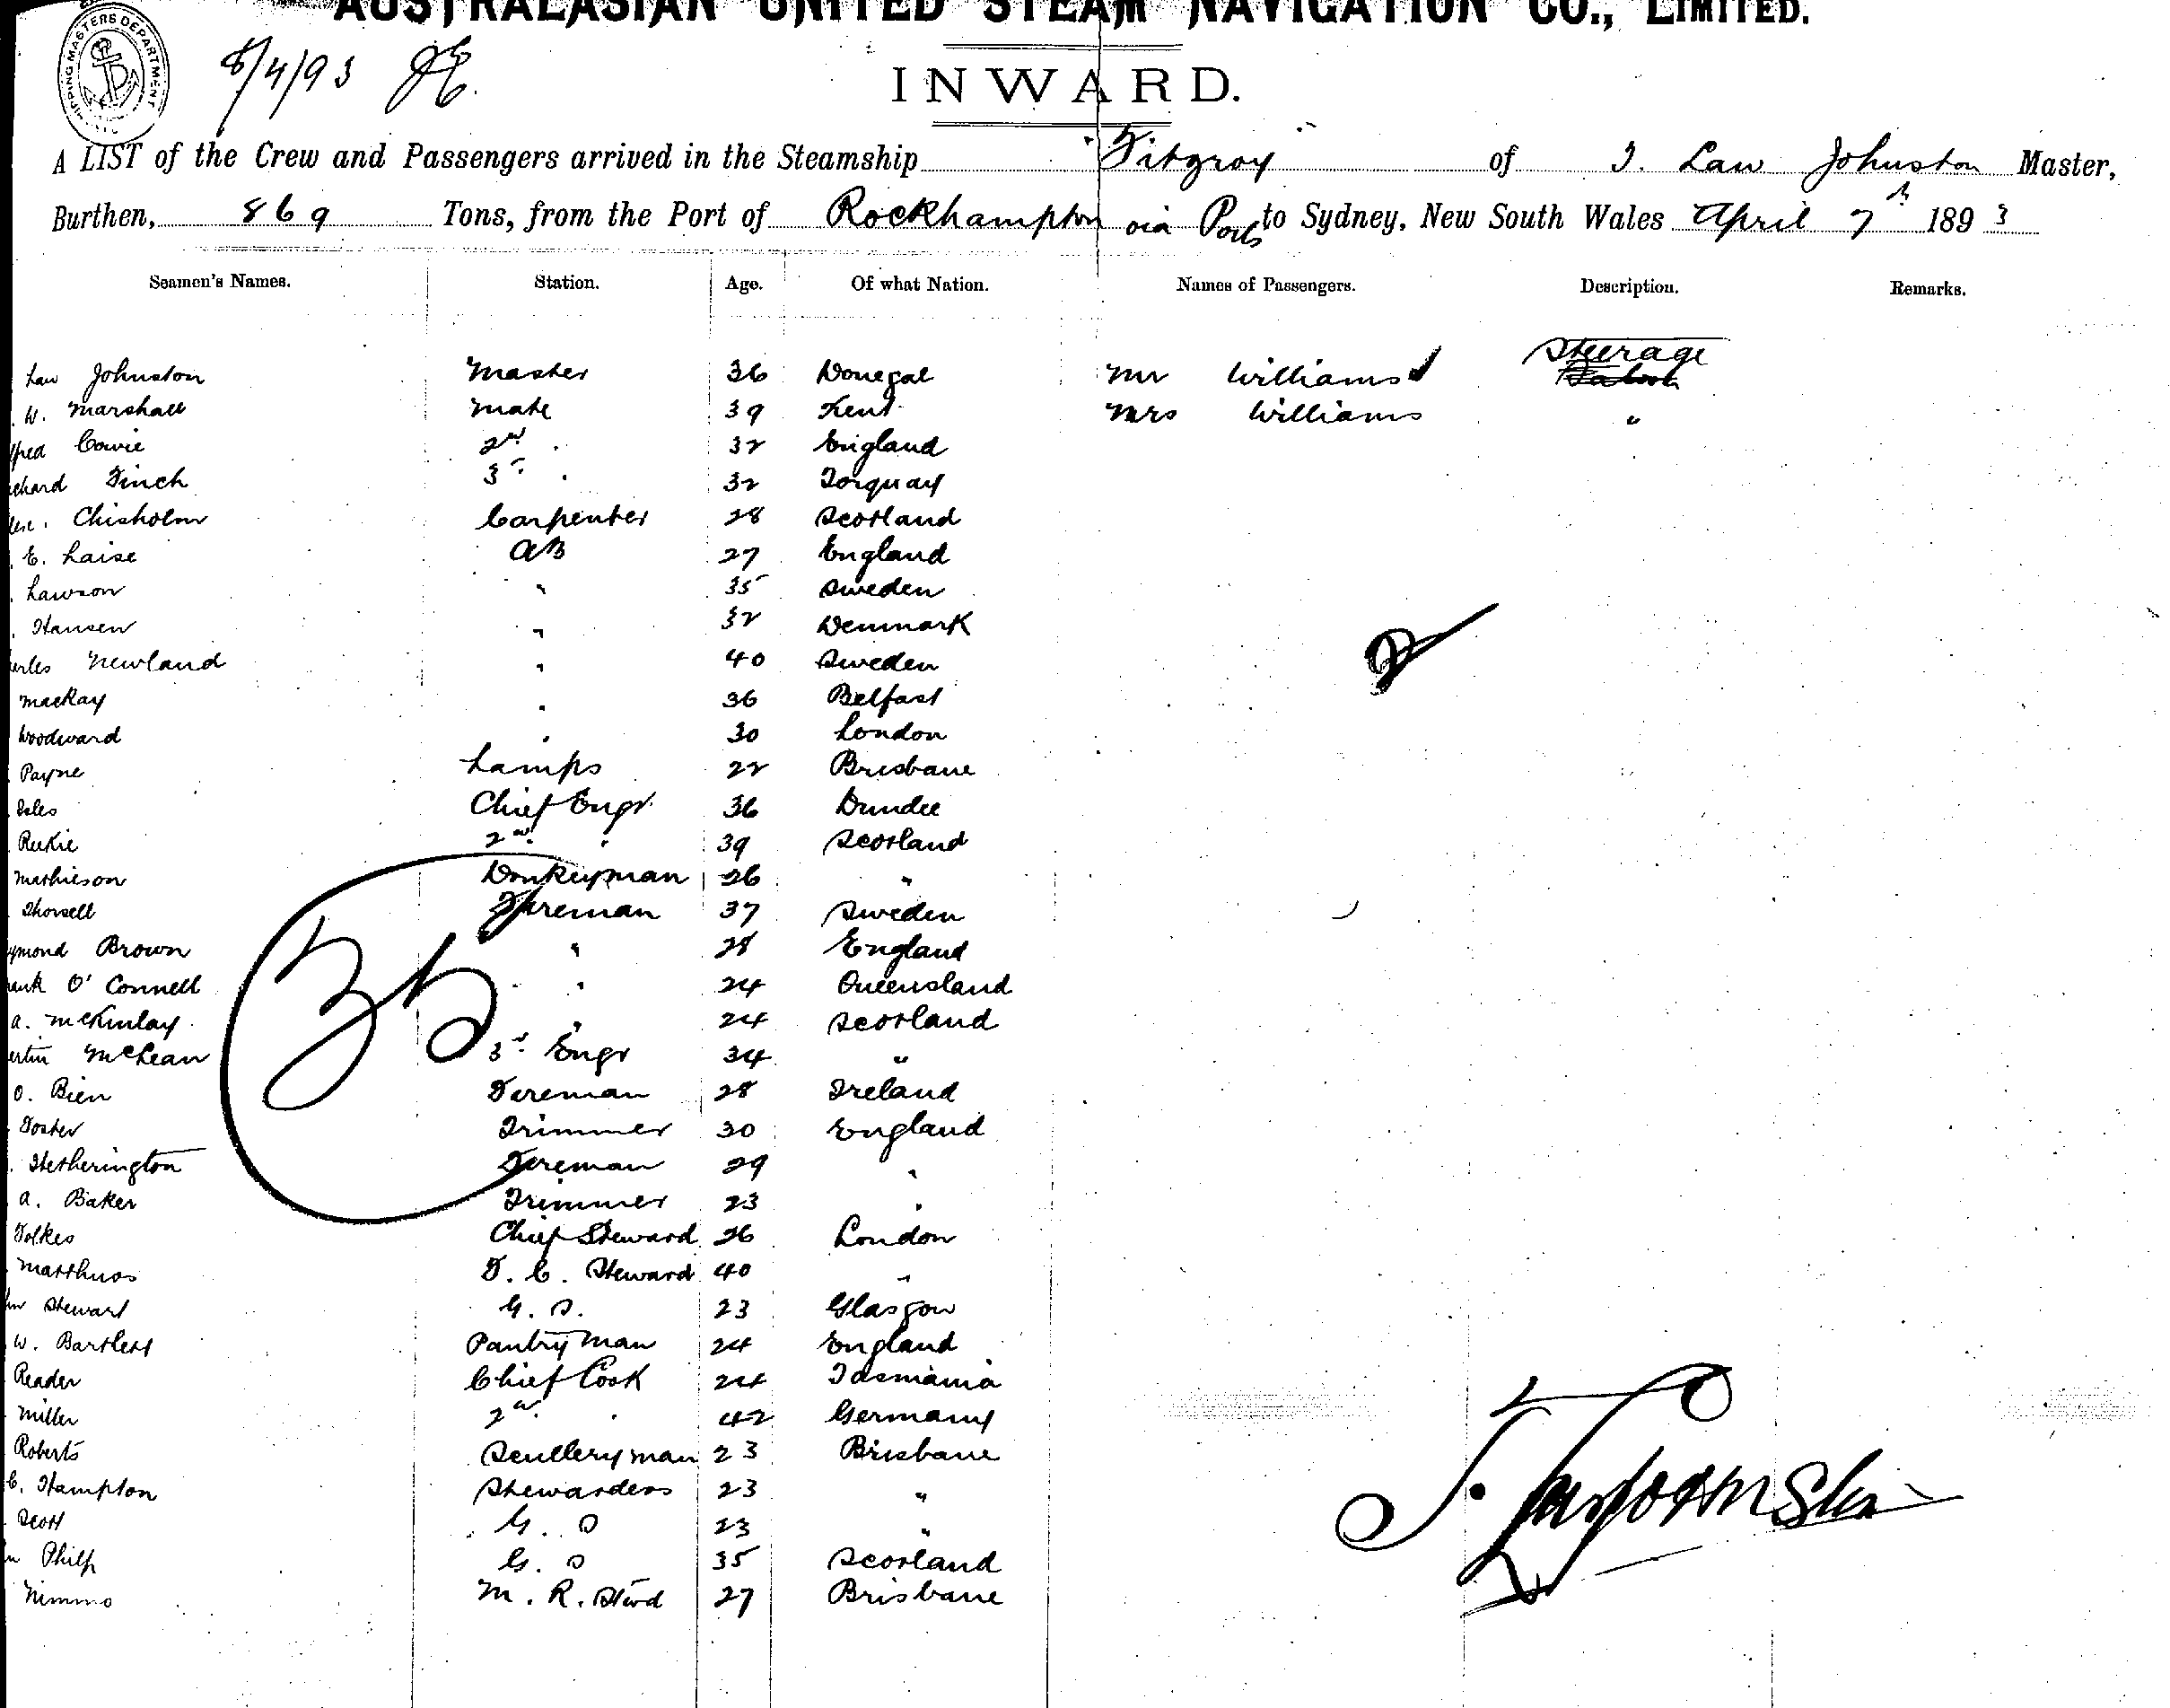 AUSTRALASIAN UNITED STEAM NAVIGATION CO., LIMITED.
SHIPPING MASTERS DEPARTMENT
8/4/93 JE.
INWARD.
A LIST of the Crew and Passengers arrived in the Steamship Fitzroy of J. Law Johnston Master,
Burthen, 869 Tons, from the Port of Rockhampton via Ports to Sydney, New South Wales April 7th 1893
Seamen's Names. Station. Age. Of what Nation. Names of Passengers. Description. Remarks.
Law Johnston Master 36 Donegal Mr Williams Steerage
W. Marshall Mate 39 Kent Mrs Williams "
fred Cowie 2nd " 32 England
chard Finch 3rd " 32 Torquay
Chisholm Carpenter 28 Scotland
E. Laise AB 27 England
Lawson " 35 Sweden
Hansen " 32 Denmark
arles Newland " 40 Sweden
Mackay " 36 Belfast
Woodward " 30 London
Payne Lamps 22 Brisbane
Sales Chief Engr 36 Dundee
Reekie 2nd " 39 Scotland
Mathieson Donkeyman 26 "
Thorsell Fireman 37 Sweden
ymond Brown " 28 England
rank O'Connell " 24 Queensland
A. McKinlay " 24 Scotland
McLean 3rd Engr 34 "
O. Bien Fireman 28 Ireland
Foster Trimmer 30 England
Hetherington Fireman 29 "
A. Baker Trimmer 23 "
Folkes Chief Steward 26 London
Matthews F. C. Steward 40 "
Stewart G. S. 23 Glasgow
W. Bartlett Pantry Man 24 England
Reader Chief Cook 24 Tasmania
Miller 2nd " 42 Germany
Roberts Scullery man 23 Brisbane
C. Hampton Stewardess 23 "
Scott G. S 23 "
n Philp G. S 35 Scotland
Nimmo M. R. Stwd 27 Brisbane
35
2
J. Law Johnston